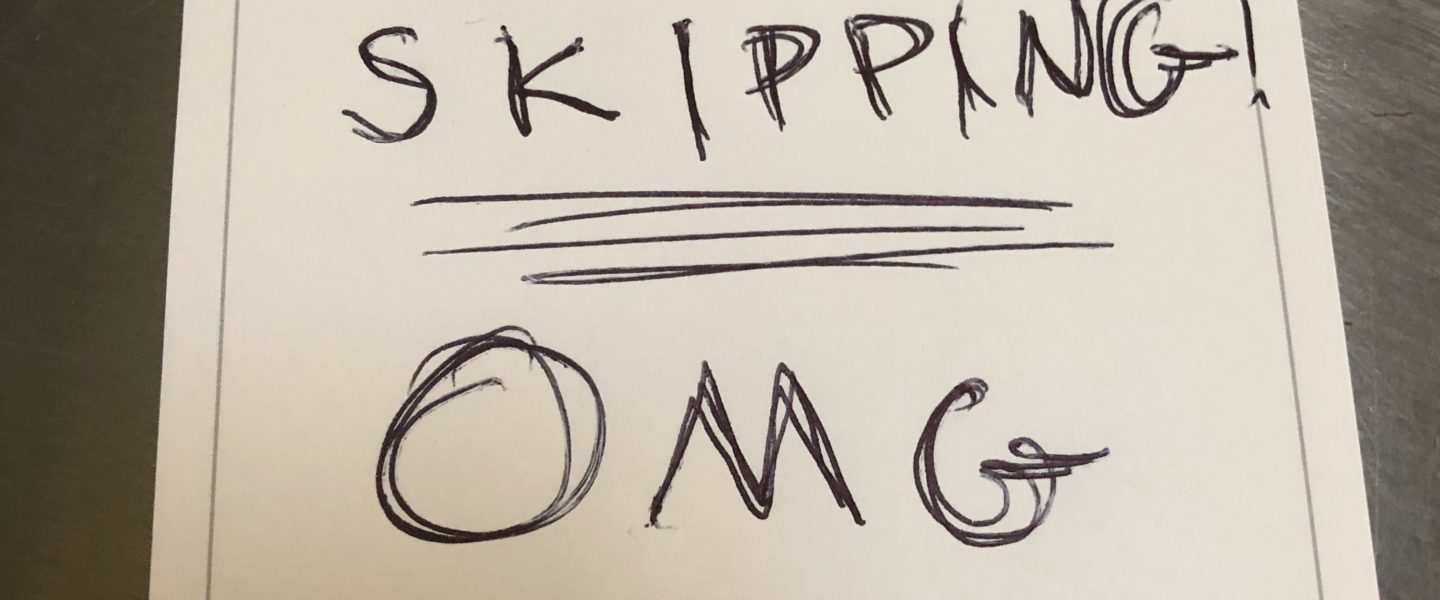 SKIPPING!
OMG